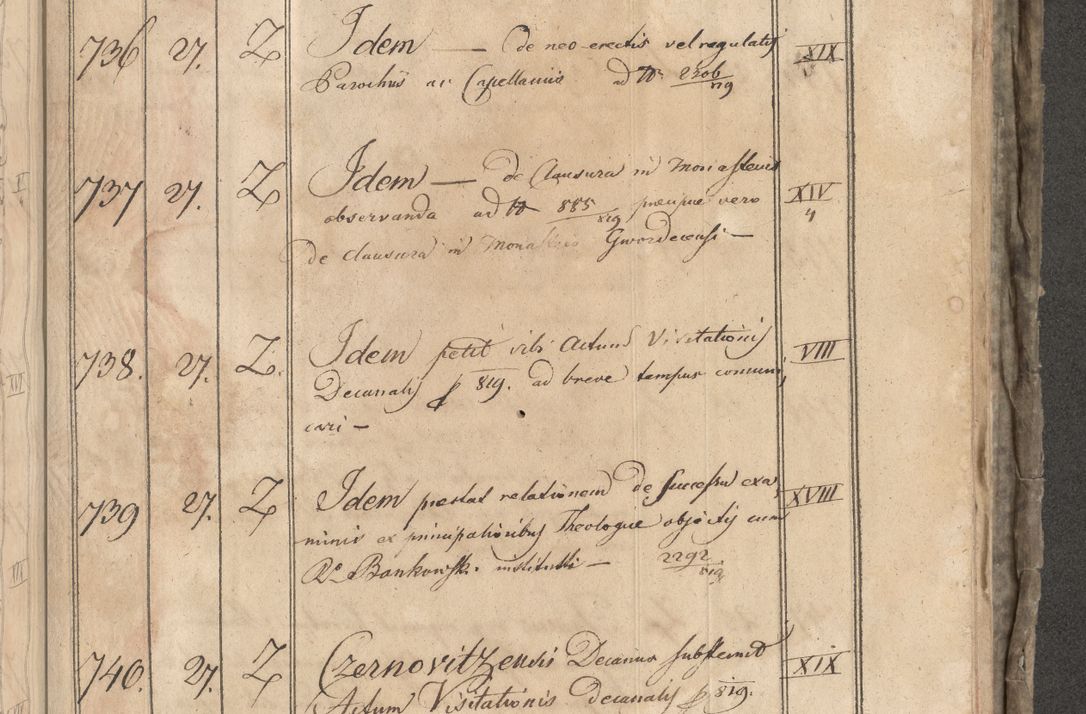 736 27. Z Idem — de neo erectis vel regulatis XIX
Parochiis ac Capellaniis ad N 2206/819
737 27. Z Idem — de Clausura in Monasteriis XIV
observanda ad N 885/819 vero 4
de clausura in Monasterio —
738. 27. Z. Idem petit sibi Actum Visitationis VIII
Decanalis p 819. ad breve tempus communi
cari —
739 27. Z Idem praestat relationem de successu exa XVIII
minis ex principalioribus Theologiae objectis cum
Ro Bankowski instituti — 2292/819
740. 27. Z Czernovitzensis Decanus substernit XIX
Actum Visitationis decanalis p 819.